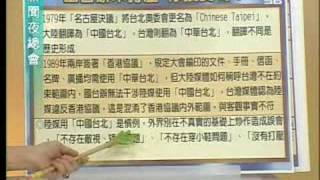 新聞夜總會
1979年「名古屋決議」將台北奧委會更名為「Chinese Taipei」,
大陸翻譯為「中國台北」,台灣則翻為「中華台北」,翻譯不同是
歷史形成
1989年兩岸簽署「香港協議」,規定大會編印的文件、手冊、信函、
名牌、廣播均需使用「中華台北」,但大陸媒體如何稱呼台灣不在約
束範圍內,國台辦無法干涉陸媒使用「中國台北」,台灣媒體認為陸
媒違反香港協議,這是混淆了香港協議內外範圍,與客觀事實不符
陸媒用「中國台北」是慣例,外界別在不真實的基礎上炒作造成誤會
「不存在敵視、
問題」、「不存在穿小鞋問題」、「沒有打壓